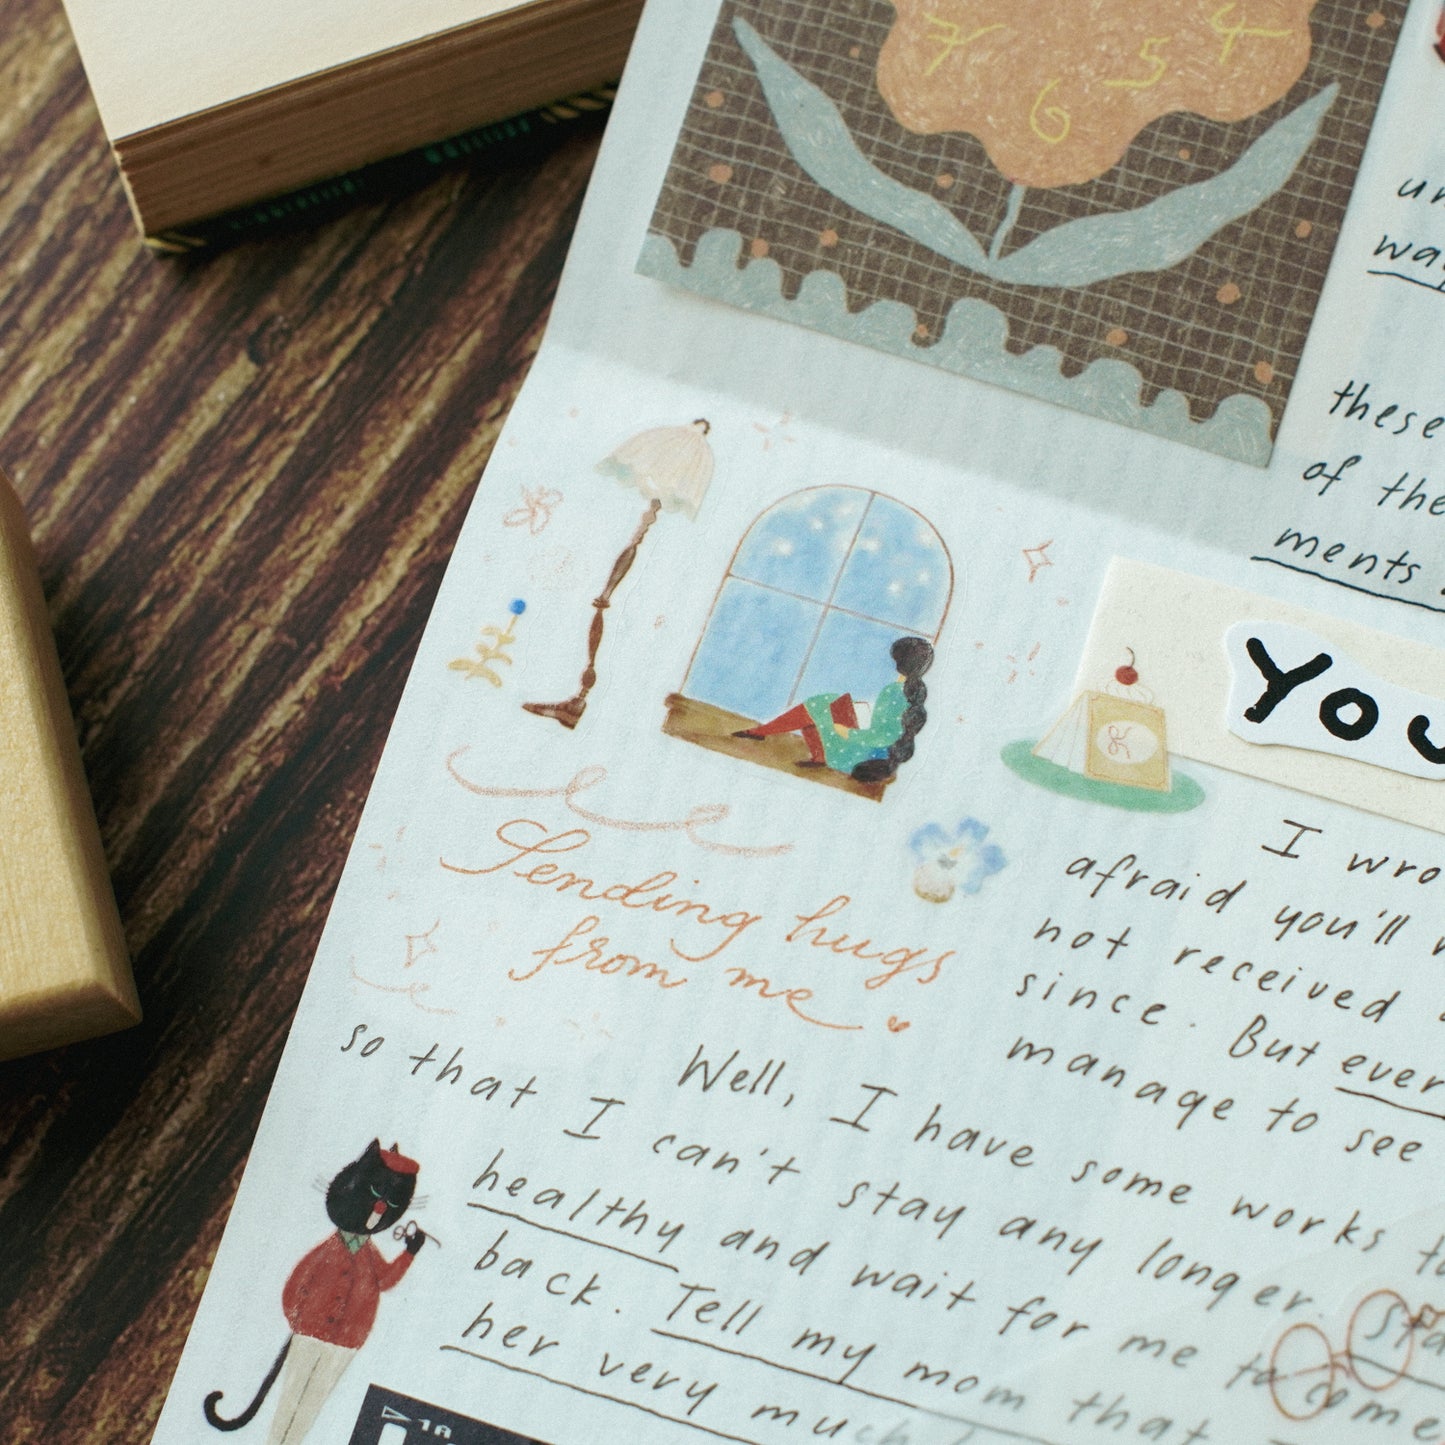 7 6 5 4
these
of the
ments
You
I wro
afraid you'll
not received
since. But ever
manage to see
Sending hugs
from me
Well, I have some works to
so that I can't stay any longer. Sta
healthy and wait for me to come
back. Tell my mom that
her very much